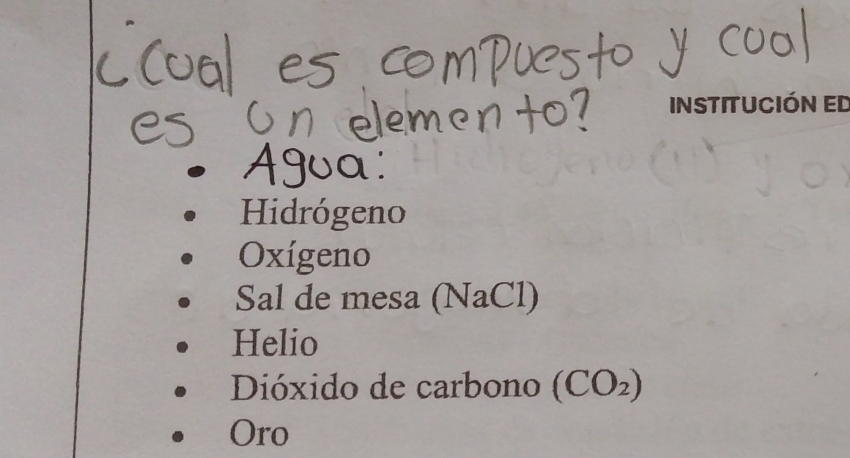 ¿Cual es compuesto y cual
es un elemento?
INSTITUCIÓN ED
• Agua:
• Hidrógeno
• Oxígeno
• Sal de mesa (NaCl)
• Helio
• Dióxido de carbono (CO₂)
• Oro